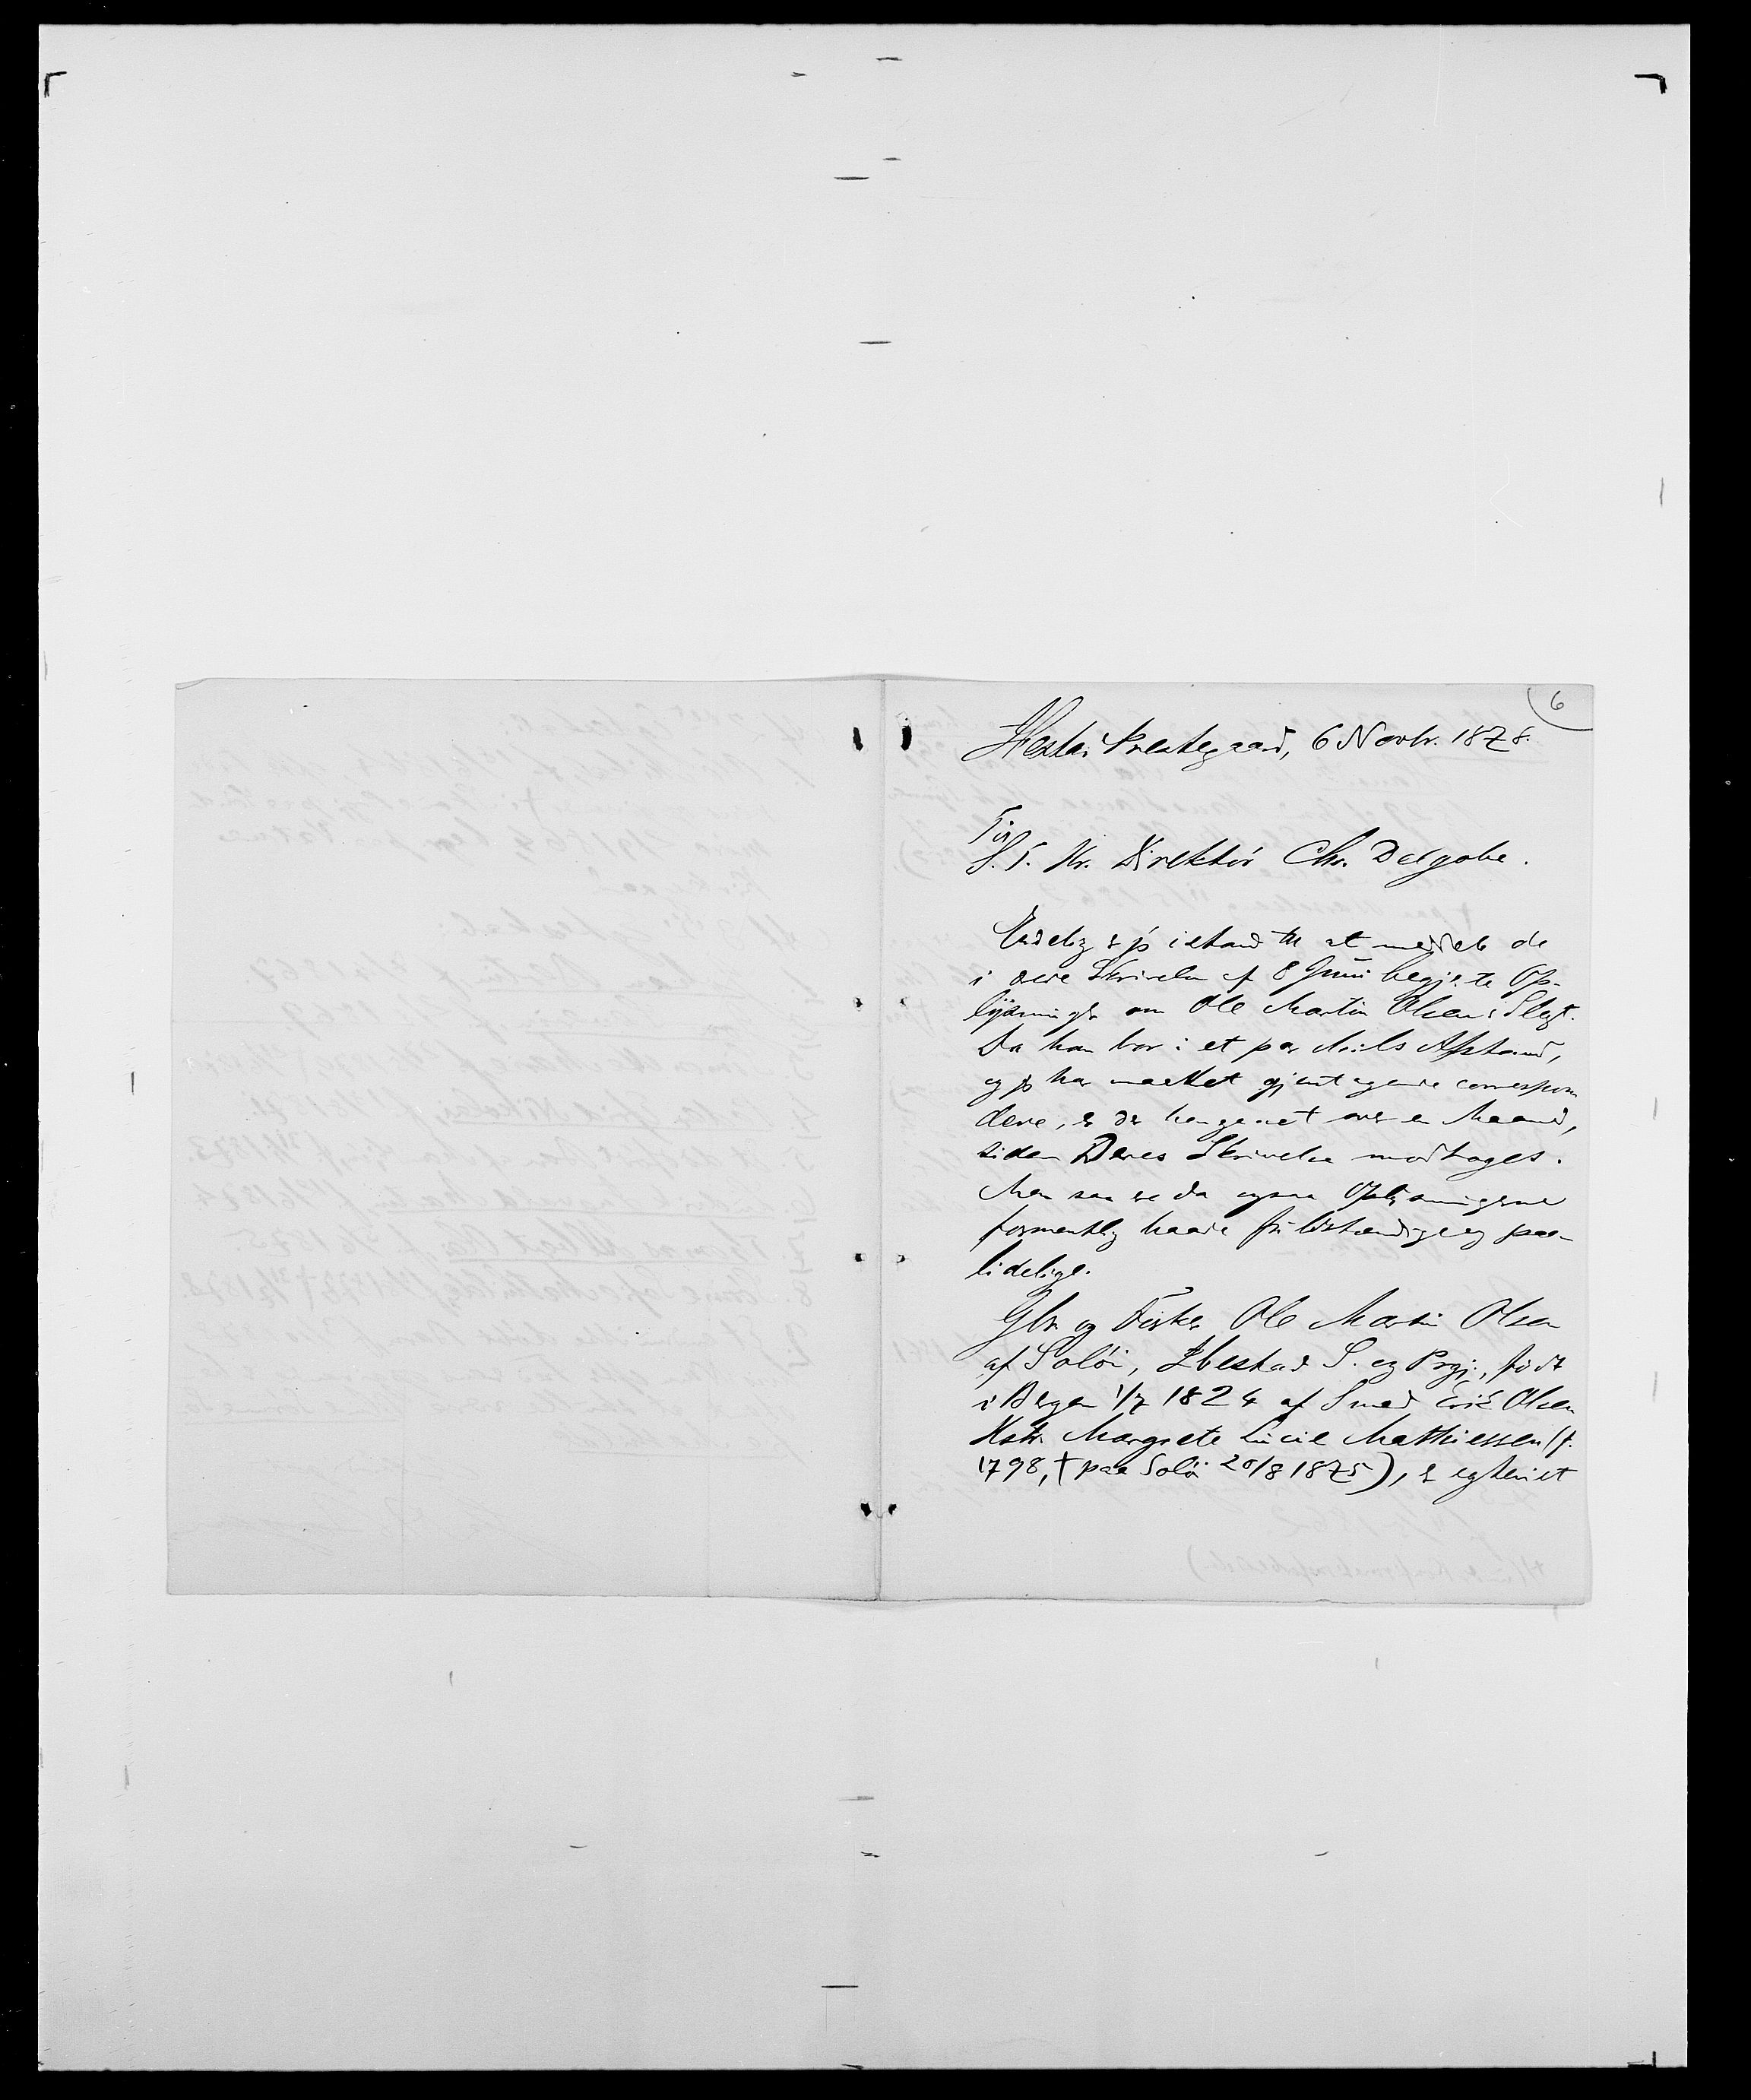 6
Prestegaard, 6 Novbr. 1878.
Til
S. T. Hr. Direktör Chr. Delgobe.
Endelig er jeg istand til at meddele de
i Skrivelse af 8 Juni begjærte Op-
lysninger om Ole Martin Olsens Slegt.
Da han bor i et par Miils Afstand,
og jeg har maattet gjentagende correspon
dere, er der hengaaet over en Maaned,
siden Deres Skrivelse modtoges.
Men saa ere da ogsaa Oplysningerne
formentlig baade fuldstændige og paa-
lidelige.
Gbr. og Fisker Ole Martin Olsen
af Solöi, Ibestad S. og Prgj., født
i Bergen 1/7 1824 af Smed Erik Olsen
Hstr. Margrete Lucie Mathiessen (f.
1798, † paa Solöi 20/8 1875), er egteviet